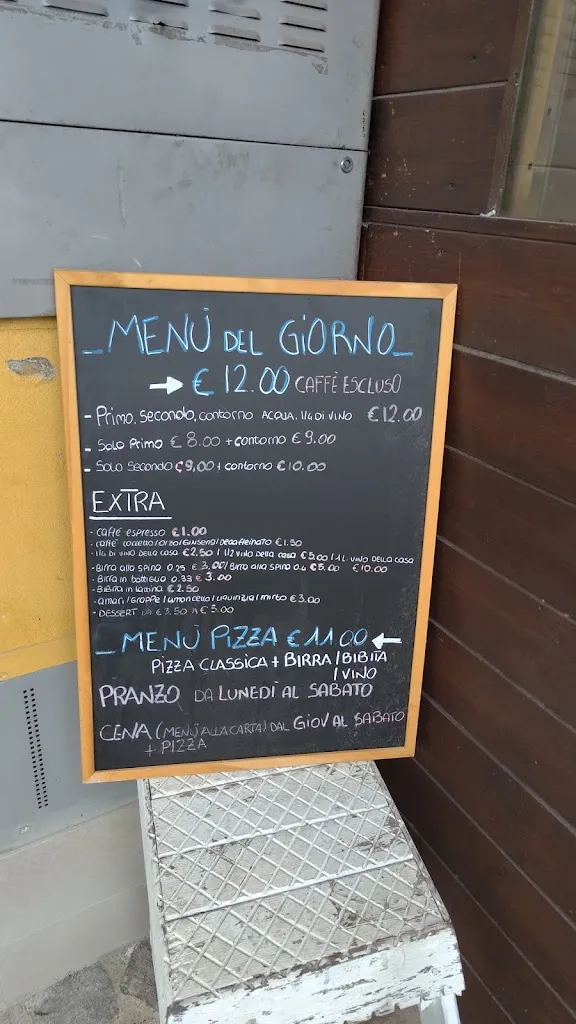 _MENÙ DEL GIORNO_
→ € 12.00 CAFFÈ ESCLUSO
- Primo, Secondo, contorno ACQUA, 1/4 DI VINO €12.00
- Solo Primo €8.00 + contorno €9.00
- Solo Secondo €9,00 + contorno €10.00
EXTRA
- caffè espresso €1.00
- caffè corretto/orzo/Ginseng/decaffeinato €1.50
- 1/4 di vino della casa €2.50 / 1/2 vino della casa €5.00 / 1 L. vino della casa
€10.00
- Birra alla spina 0.25 €3,00/ Birra alla spina 0.4 €5.00
- Birra in bottiglia 0.33 €3.00
- Bibita in lattina €2.50
- amari/Grappe/Limoncello/Liquirizia/mirto €3.00
- DESSERT DA €3.50 A €5.00
_MENÙ PIZZA €11.00 ←
PIZZA CLASSICA + BIRRA / BIBITA
/ VINO
PRANZO DA LUNEDÌ AL SABATO
CENA (MENÙ ALLA CARTA) DAL GIOV AL SABATO
+ PIZZA